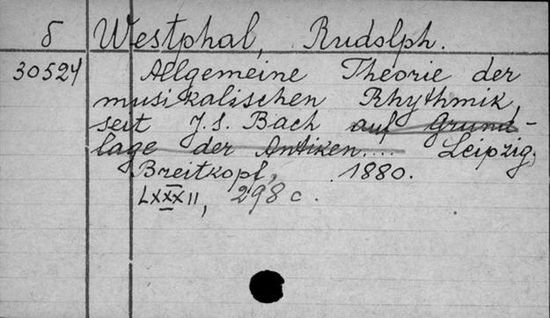 δ Westphal, Rudolph.
30524 Allgemeine Theorie der
musikalischen Rhythmik,
seit J.S. Bach auf Grund-
lage der Antiken.... Leipzig,
Breitkopf, 1880.
LXXXII, 298 c.